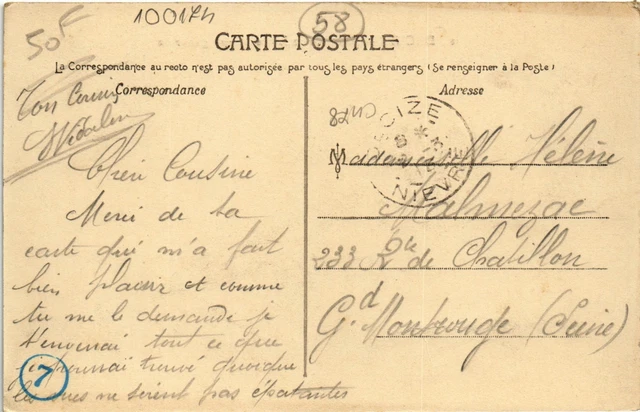 50F
100174
58
CARTE POSTALE
La Correspondance au recto n'est pas autorisée par tous les pays étrangers (Se renseigner à la Poste)
Correspondance
Adresse
Ton Cousin
Chère Cousine
Merci de ta
carte qui m'a fait
bien plaisir et comme
tu me le demande je
t'enverrai tout ce que
je pourrai trouvé quoique
les vues ne seront pas épatantes
7
CN78
NIEVRE
Mademoiselle Hélène
Malmezac
233 Rte de Chatillon
Gd Montrouge (Seine)